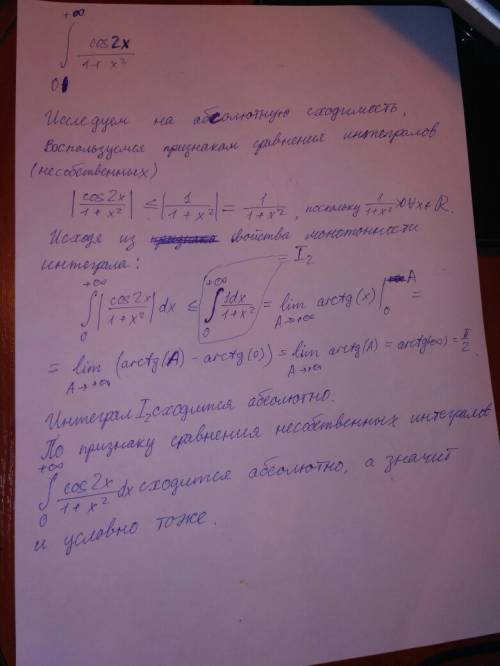 +∞
∫ cos2x / (1 + x²)
0
Исследуем на абсолютную сходимость,
воспользуемся признакам сравнения интегралов
(несобственных)
|cos2x / (1 + x²)| ≤ |1 / (1 + x²)| = 1 / (1 + x²), поскольку 1 / (1+x²) > 0 ∀x ∈ ℝ.
Исходя из свойства монотонности
интеграла:
= I₂
∫₀^{+∞} |cos2x / (1 + x²)| dx ≤ ∫₀^{+∞} 1dx / (1 + x²) = lim_{A→+∞} arctg(x) |₀^A =
= lim_{A→+∞} (arctg(A) − arctg(0)) = lim_{A→+∞} arctg(A) = arctg(∞) = π/2.
Интеграл I₂ сходится абсолютно.
По признаку сравнения несобственных интегралов
∫₀^{+∞} cos2x / (1 + x²) dx сходится абсолютно, а значит
и условно тоже.